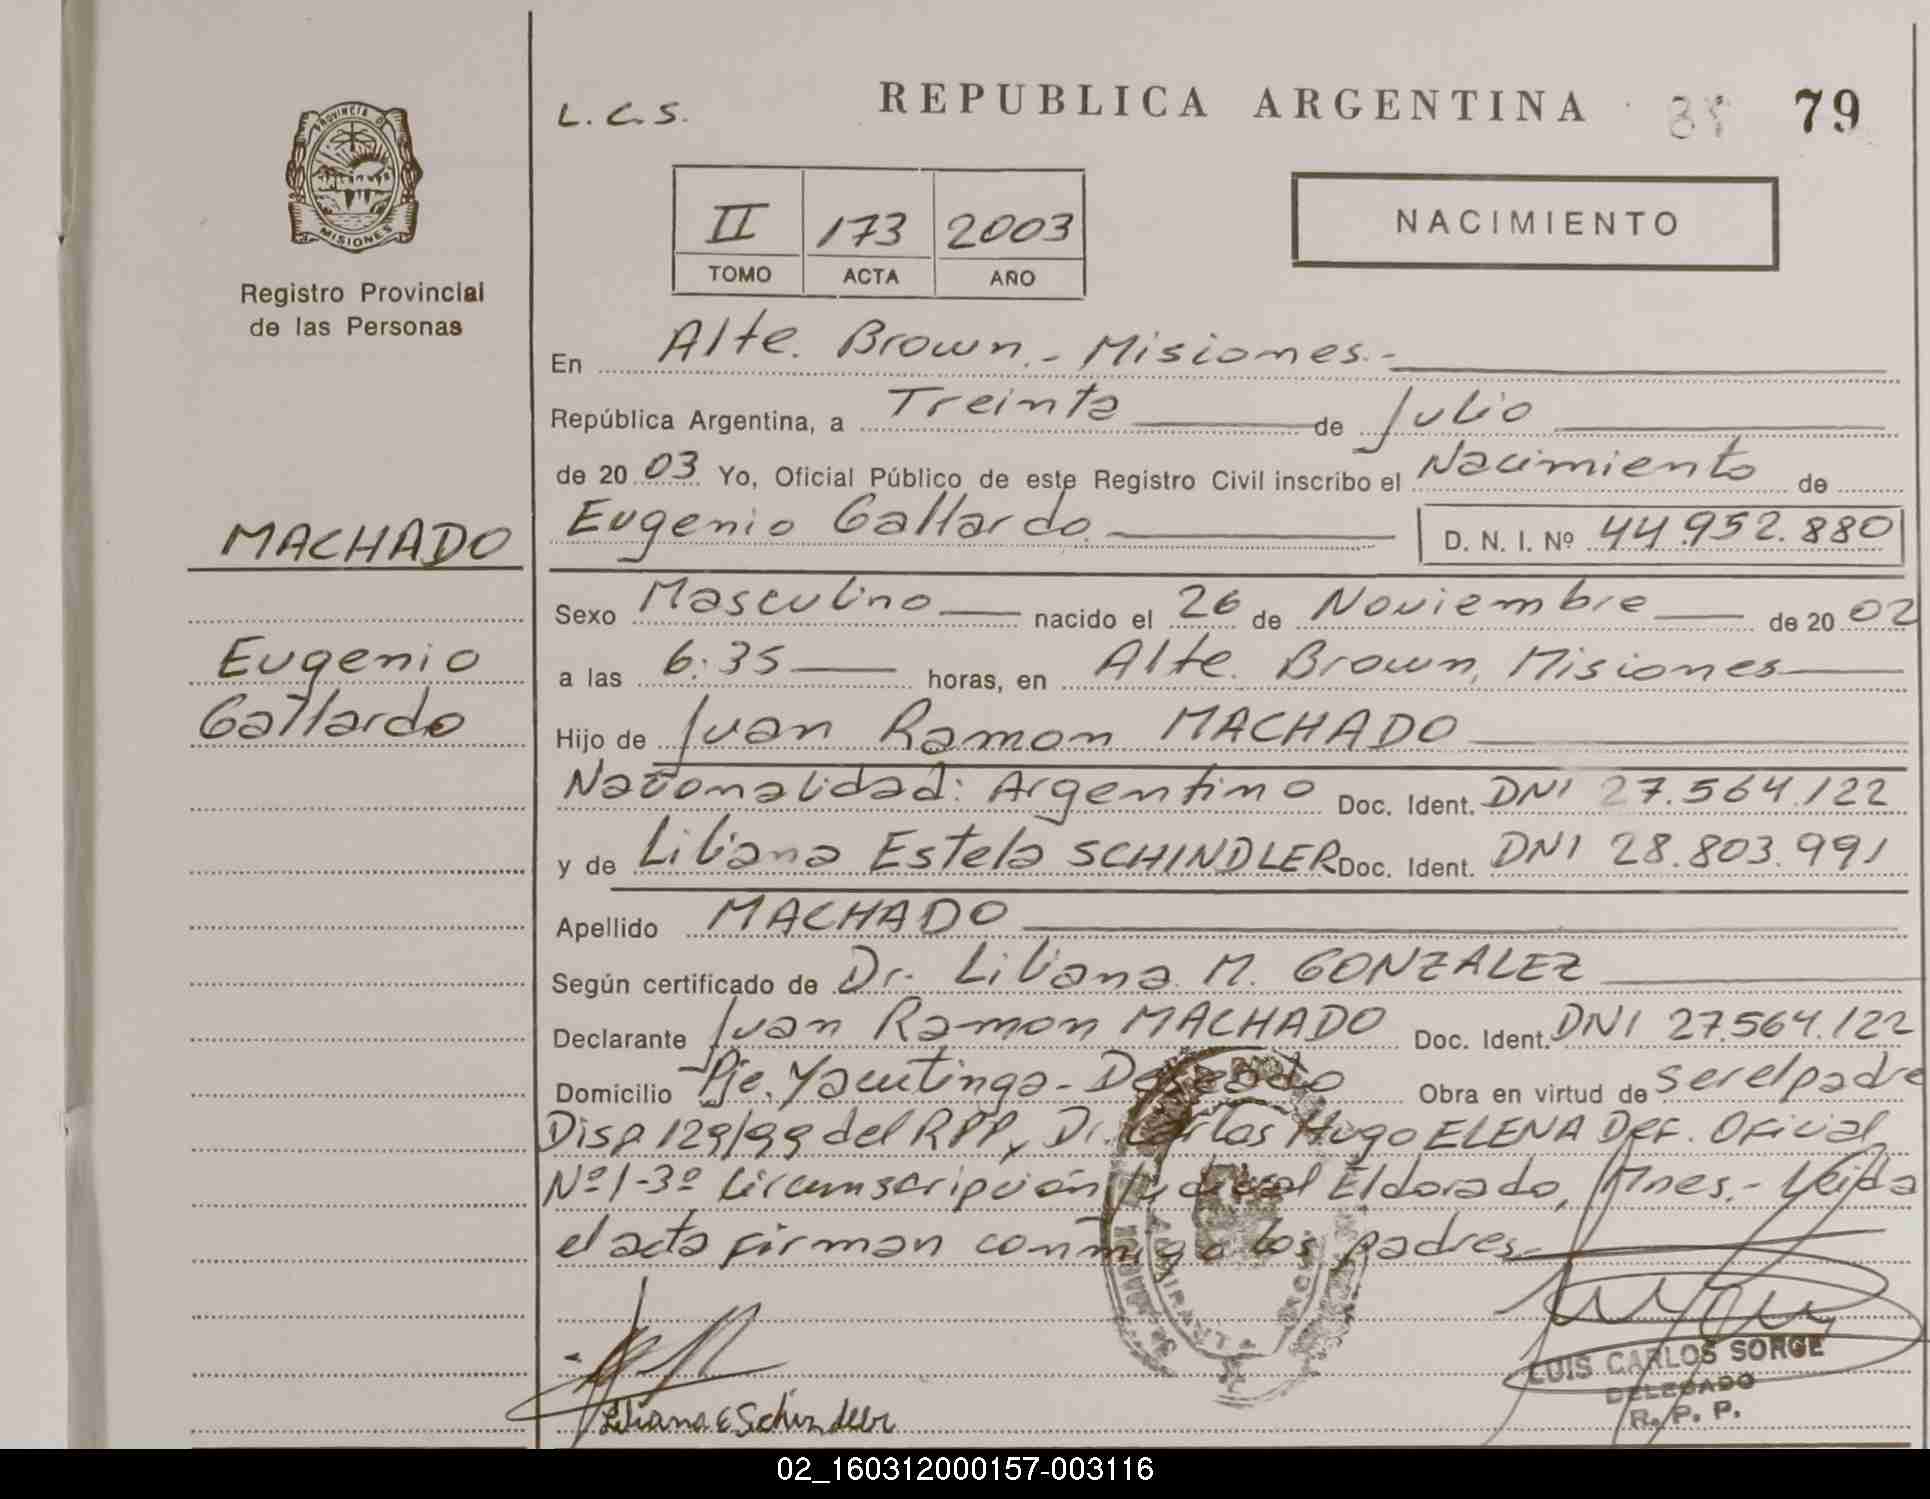 PROVINCIA D
MISIONES
Registro Provincial
de las Personas
MACHADO
Eugenio
Gallardo
L. C. S.
REPUBLICA ARGENTINA 79
II 173 2003
TOMO ACTA AÑO
NACIMIENTO
En Alte. Brown.- Misiones.-
República Argentina, a Treinta de Julio
de 2003 Yo, Oficial Público de este Registro Civil inscribo el Nacimiento de
Eugenio Gallardo D. N. I. Nº 44.952.880
Sexo Masculino nacido el 26 de Noviembre de 2002
a las 6:35 horas, en Alte. Brown, Misiones
Hijo de Juan Ramon MACHADO
Nacionalidad: Argentino Doc. Ident. DNI 27.564.122
y de Liliana Estela SCHINDLER Doc. Ident. DNI 28.803.991
Apellido MACHADO
Según certificado de Dr. Liliana M. GONZALEZ
Declarante Juan Ramon MACHADO Doc. Ident. DNI 27.564.122
Domicilio Pje. Yacutinga - Deseado Obra en virtud de ser el padre
Disp. 129/99 del RPP, Dr. Carlos Hugo ELENA Def. Oficial
Nº1-3º Circunscripción Judicial Eldorado, Mnes.- Leida
el acta firman conmigo los padres.-
Liliana E Schindler
LUIS CARLOS SORGE
DELEGADO
R. P. P.
02_160312000157-003116